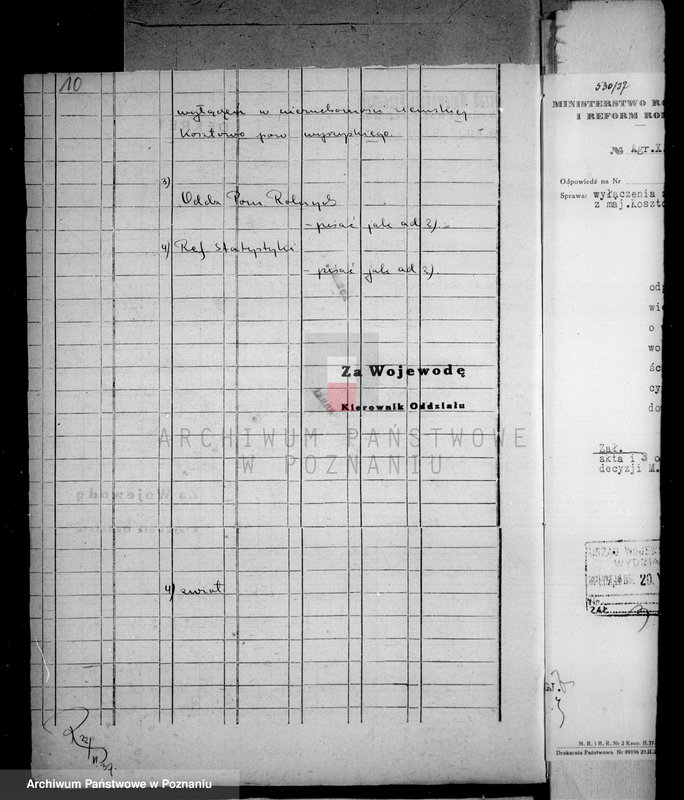 10
wyłączeń w nieruchomości ziemskiej
Kosztowo pow. wyrzyskiego.
3)
Oddz. Pom. Rolnych
- pisać jak ad 2).
4) Ref. Statystyki
- pisać jak ad 2).
Za Wojewodę
Kierownik Oddziału
ARCHIWUM PAŃSTWOWE
W POZNANIU
4) zwrot
530/37
MINISTERSTWO RO
I REFORM ROL
№ Agr.X.
Odpowiedź na Nr
Sprawa: wyłączenia z
z maj.Koszto
odp
wie
o w
wo
ści
cy
do
Zał.
akta i 3 o
decyzji M.
URZĄD WOJEW
WYDZIA
WPŁYNĘŁO DN. 20. V
Nr.
ZAŁ.
GJ.
M. R. i R. R. Nr 2 Kanc. II.37.
Drukarnia Państwowa Nr 89196 20.II.
Archiwum Państwowe w Poznaniu